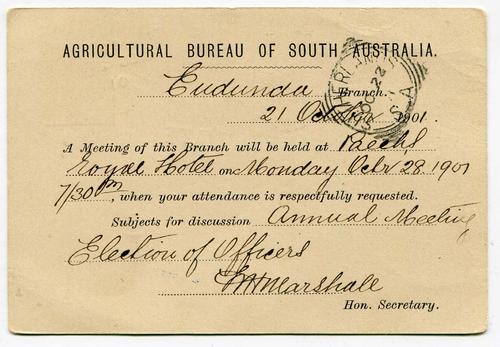 AGRICULTURAL BUREAU OF SOUTH AUSTRALIA.
Eudunda Branch.
21 October 1901.
A Meeting of this Branch will be held at
Royal Hotel on Monday Octr 28 1901
7/30 pm, when your attendance is respectfully requested.
Subjects for discussion Annual Meeting
Election of Officers
Marshall
Hon. Secretary.
OC 22
S.A